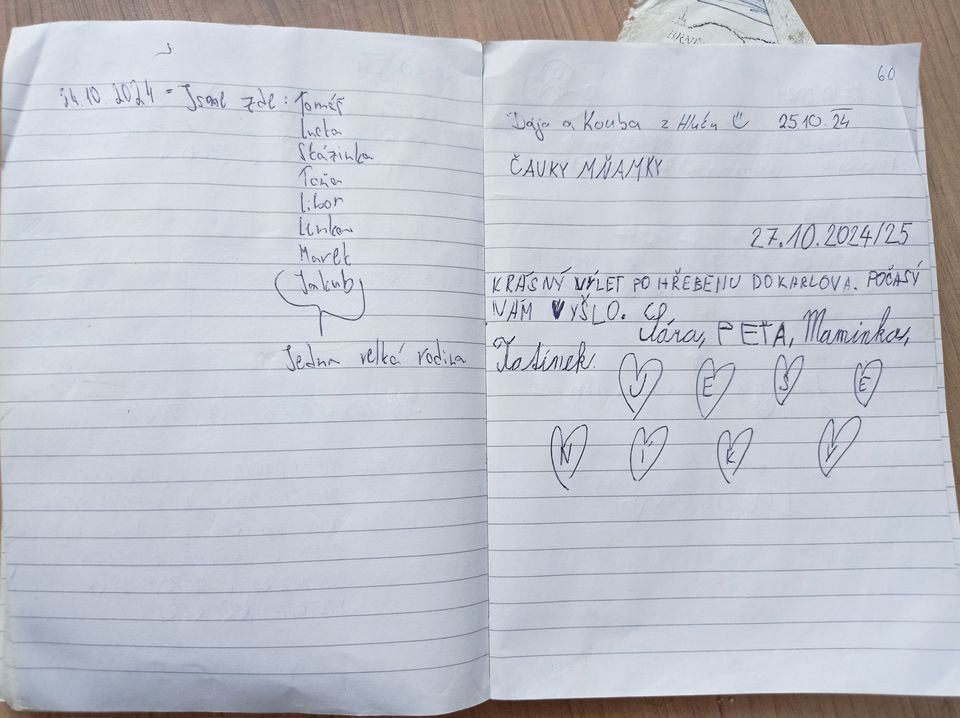 24.10.2024 = Jsme zde: Tomáš
Lucka
Stázinka
Toňa
Libor
Lenka
Marek
Jakub
Jedna velká rodina
60
Dája a Kouba z Hlučína 25.10.24
ČAUKY MŇAMKY
27.10.2024/25
KRÁSNÝ VÝLET PO HŘEBENU DO KARLOVA. POČASÝ
NÁM VYŠLO.
Jára, PEŤA, Maminka,
Tatínek.
J E S E
N Í K Y